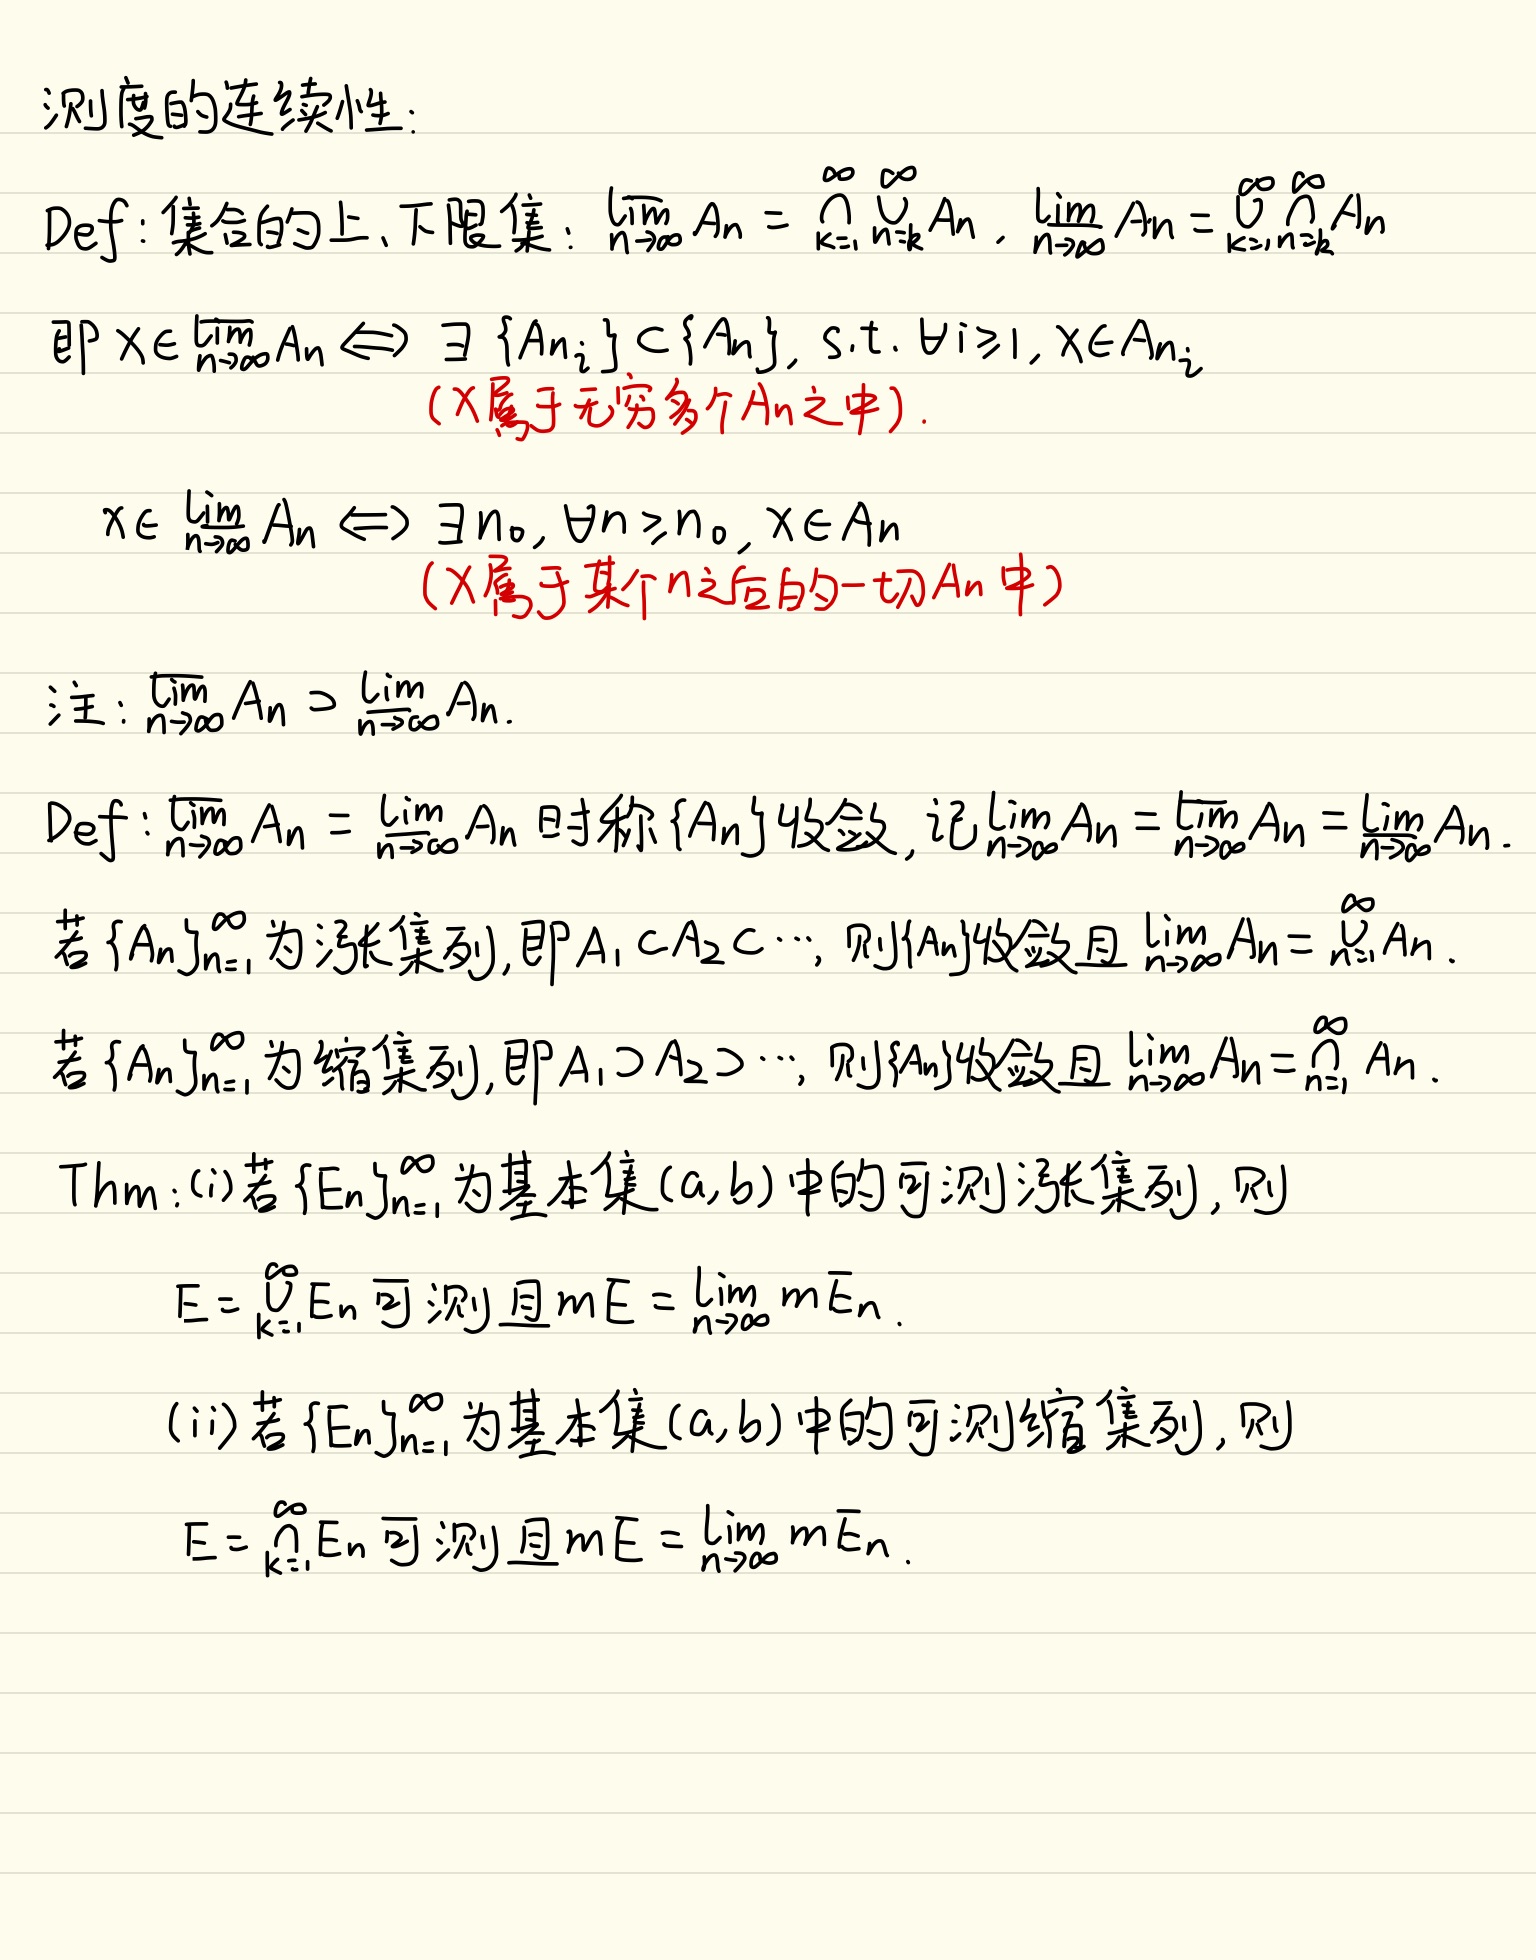 测度的连续性:
Def: 集合的上、下限集: $\varlimsup_{n\to\infty} A_n = \bigcap_{k=1}^{\infty} \bigcup_{n=k}^{\infty} A_n$. $\varliminf_{n\to\infty} A_n = \bigcup_{k=1}^{\infty} \bigcap_{n=k}^{\infty} A_n$
即 $x \in \varlimsup_{n\to\infty} A_n \Leftrightarrow \exists \{A_{n_i}\} \subset \{A_n\}$, s.t. $\forall i \geq 1, x \in A_{n_i}$
(x属于无穷多个$A_n$之中).
$x \in \varliminf_{n\to\infty} A_n \Leftrightarrow \exists n_0, \forall n \geq n_0, x \in A_n$
(x属于某个n之后的一切$A_n$中)
注: $\varlimsup_{n\to\infty} A_n \supset \varliminf_{n\to\infty} A_n$.
Def: $\varlimsup_{n\to\infty} A_n = \varliminf_{n\to\infty} A_n$ 时称$\{A_n\}$收敛, 记$\lim_{n\to\infty} A_n = \varlimsup_{n\to\infty} A_n = \varliminf_{n\to\infty} A_n$.
若$\{A_n\}_{n=1}^{\infty}$为涨集列, 即$A_1 \subset A_2 \subset \cdots$, 则$\{A_n\}$收敛且$\lim_{n\to\infty} A_n = \bigcup_{n=1}^{\infty} A_n$.
若$\{A_n\}_{n=1}^{\infty}$为缩集列, 即$A_1 \supset A_2 \supset \cdots$, 则$\{A_n\}$收敛且$\lim_{n\to\infty} A_n = \bigcap_{n=1}^{\infty} A_n$.
Thm: (i) 若$\{E_n\}_{n=1}^{\infty}$为基本集(a,b)中的可测涨集列, 则
$E = \bigcup_{k=1}^{\infty} E_n$ 可测且$mE = \lim_{n\to\infty} mE_n$.
(ii) 若$\{E_n\}_{n=1}^{\infty}$为基本集(a,b)中的可测缩集列, 则
$E = \bigcap_{k=1}^{\infty} E_n$ 可测且$mE = \lim_{n\to\infty} mE_n$.